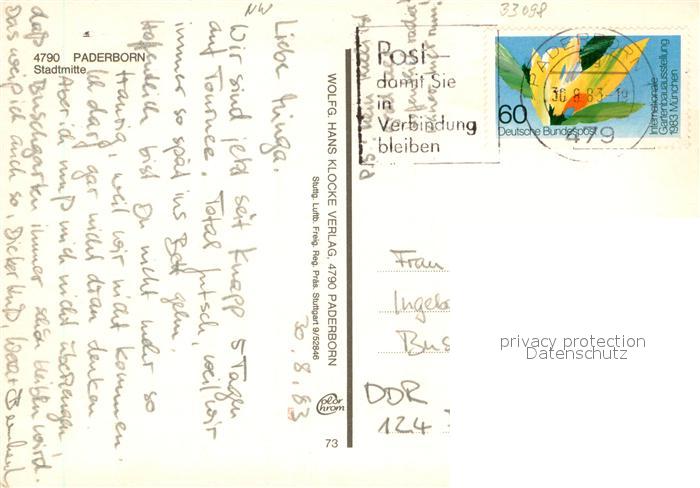 NW
33098
4790 PADERBORN
Stadtmitte
30.8.83
Liebe Inga.
Wir sind jetzt seit knapp 5 Tagen
auf Tournee. Total futsch, weil wir
immer so spät ins Bett gehn.
Hoffentlich bist Du nicht mehr so
traurig, weil wir nicht kommen.
Ich darf gar nicht dran denken.
Aber ich muß mich nicht überzeugen,
daß Buschgarten immer schön bleiben wird.
Das weiß ich auch so. Dicker Kuß,
WOLFG. HANS KLOCKE VERLAG, 4790 PADERBORN
Stuttg. Luftb. Freig. Reg. Präs. Stuttgart 9/52846
color
chrom
73
Post-
damit Sie
in
Verbindung
bleiben
PADERBORN
30.8.83-19
479
60
Deutsche Bundespost
Internationale
Gartenbauausstellung
1983 München
Frau
Ingebo
Bus
DDR
124
privacy protection
Datenschutz